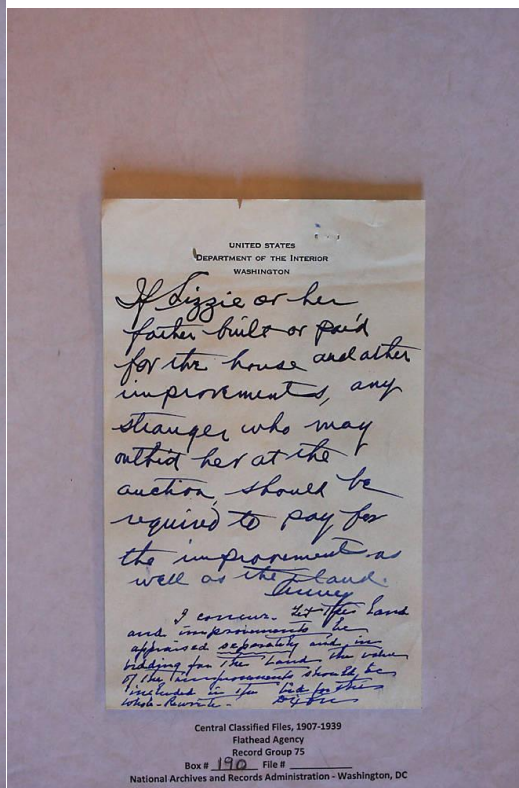 UNITED STATES
DEPARTMENT OF THE INTERIOR
WASHINGTON
If Lizzie or her
father built or paid
for the house and other
improvements, any
stranger who may
outbid her at the
auction, should be
required to pay for
the improvements as
well as the land.
I concur. Let the land
and improvements be
appraised separately and in
bidding for the land the value
of the improvements should be
included in the bid for the
whole - Rewrite -
Dixon
Central Classified Files, 1907-1939
Flathead Agency
Record Group 75
Box # 190 File #
National Archives and Records Administration - Washington, DC